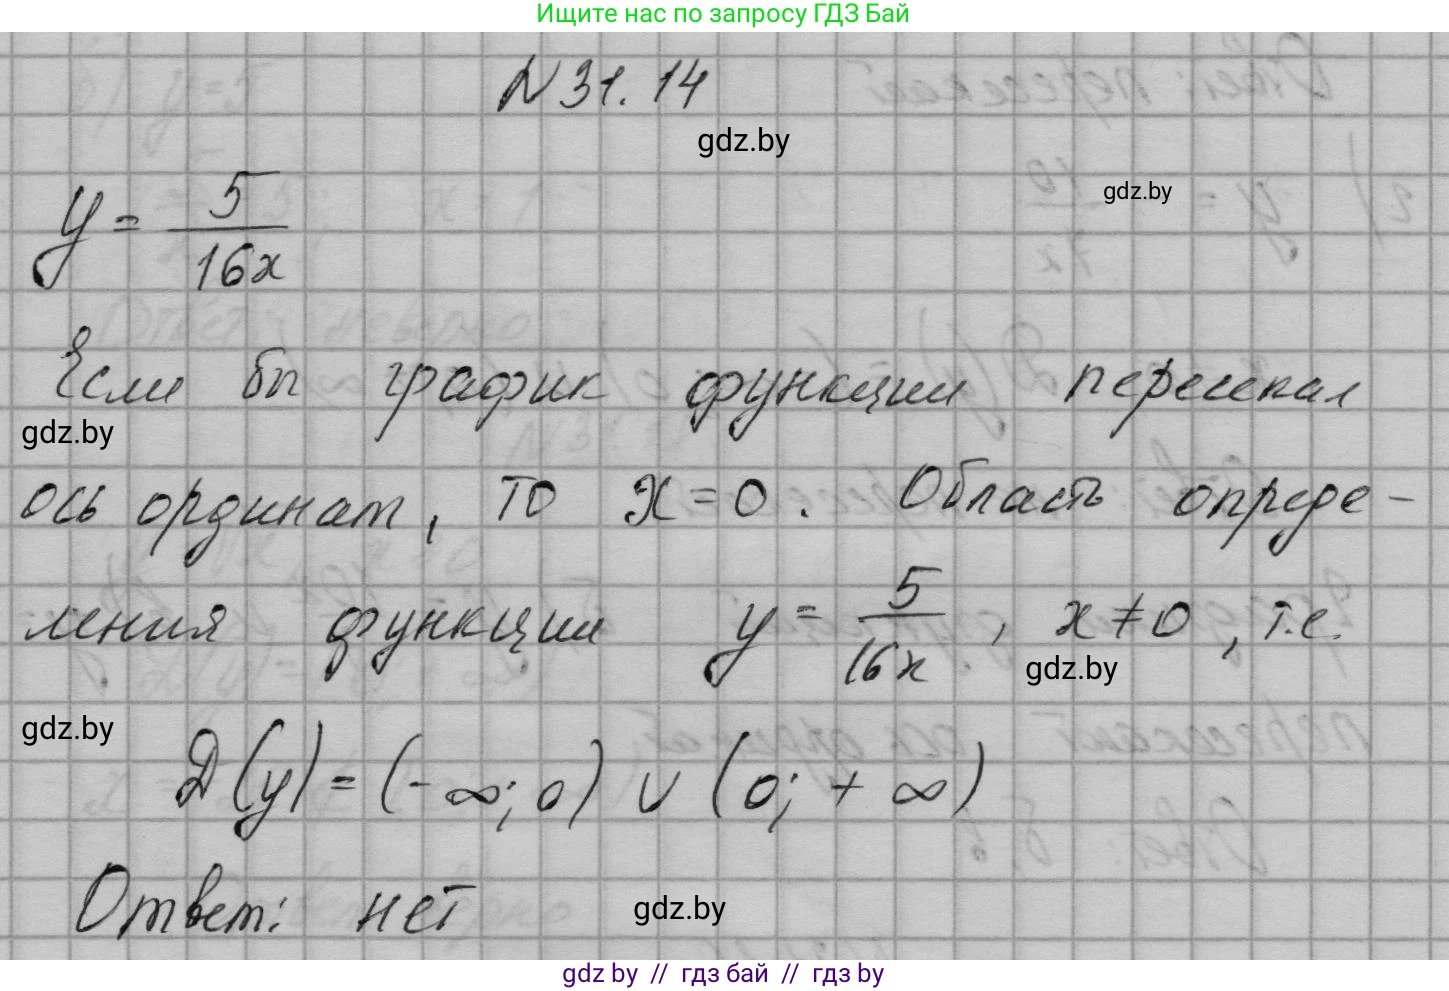 Ищите нас по запросу ГДЗ Бай
N 31.14
gdz.by
gdz.by
y = 5/16x
Если бы график функции пересекал
gdz.by
ось ординат, то x = 0. Область опреде-
ления функции y = 5/16x, x ≠ 0, т.е.
gdz.by
gdz.by
D(y) = (-∞; 0) ∪ (0; +∞)
Ответ: нет
gdz.by
gdz by // гдз бай // гдз by